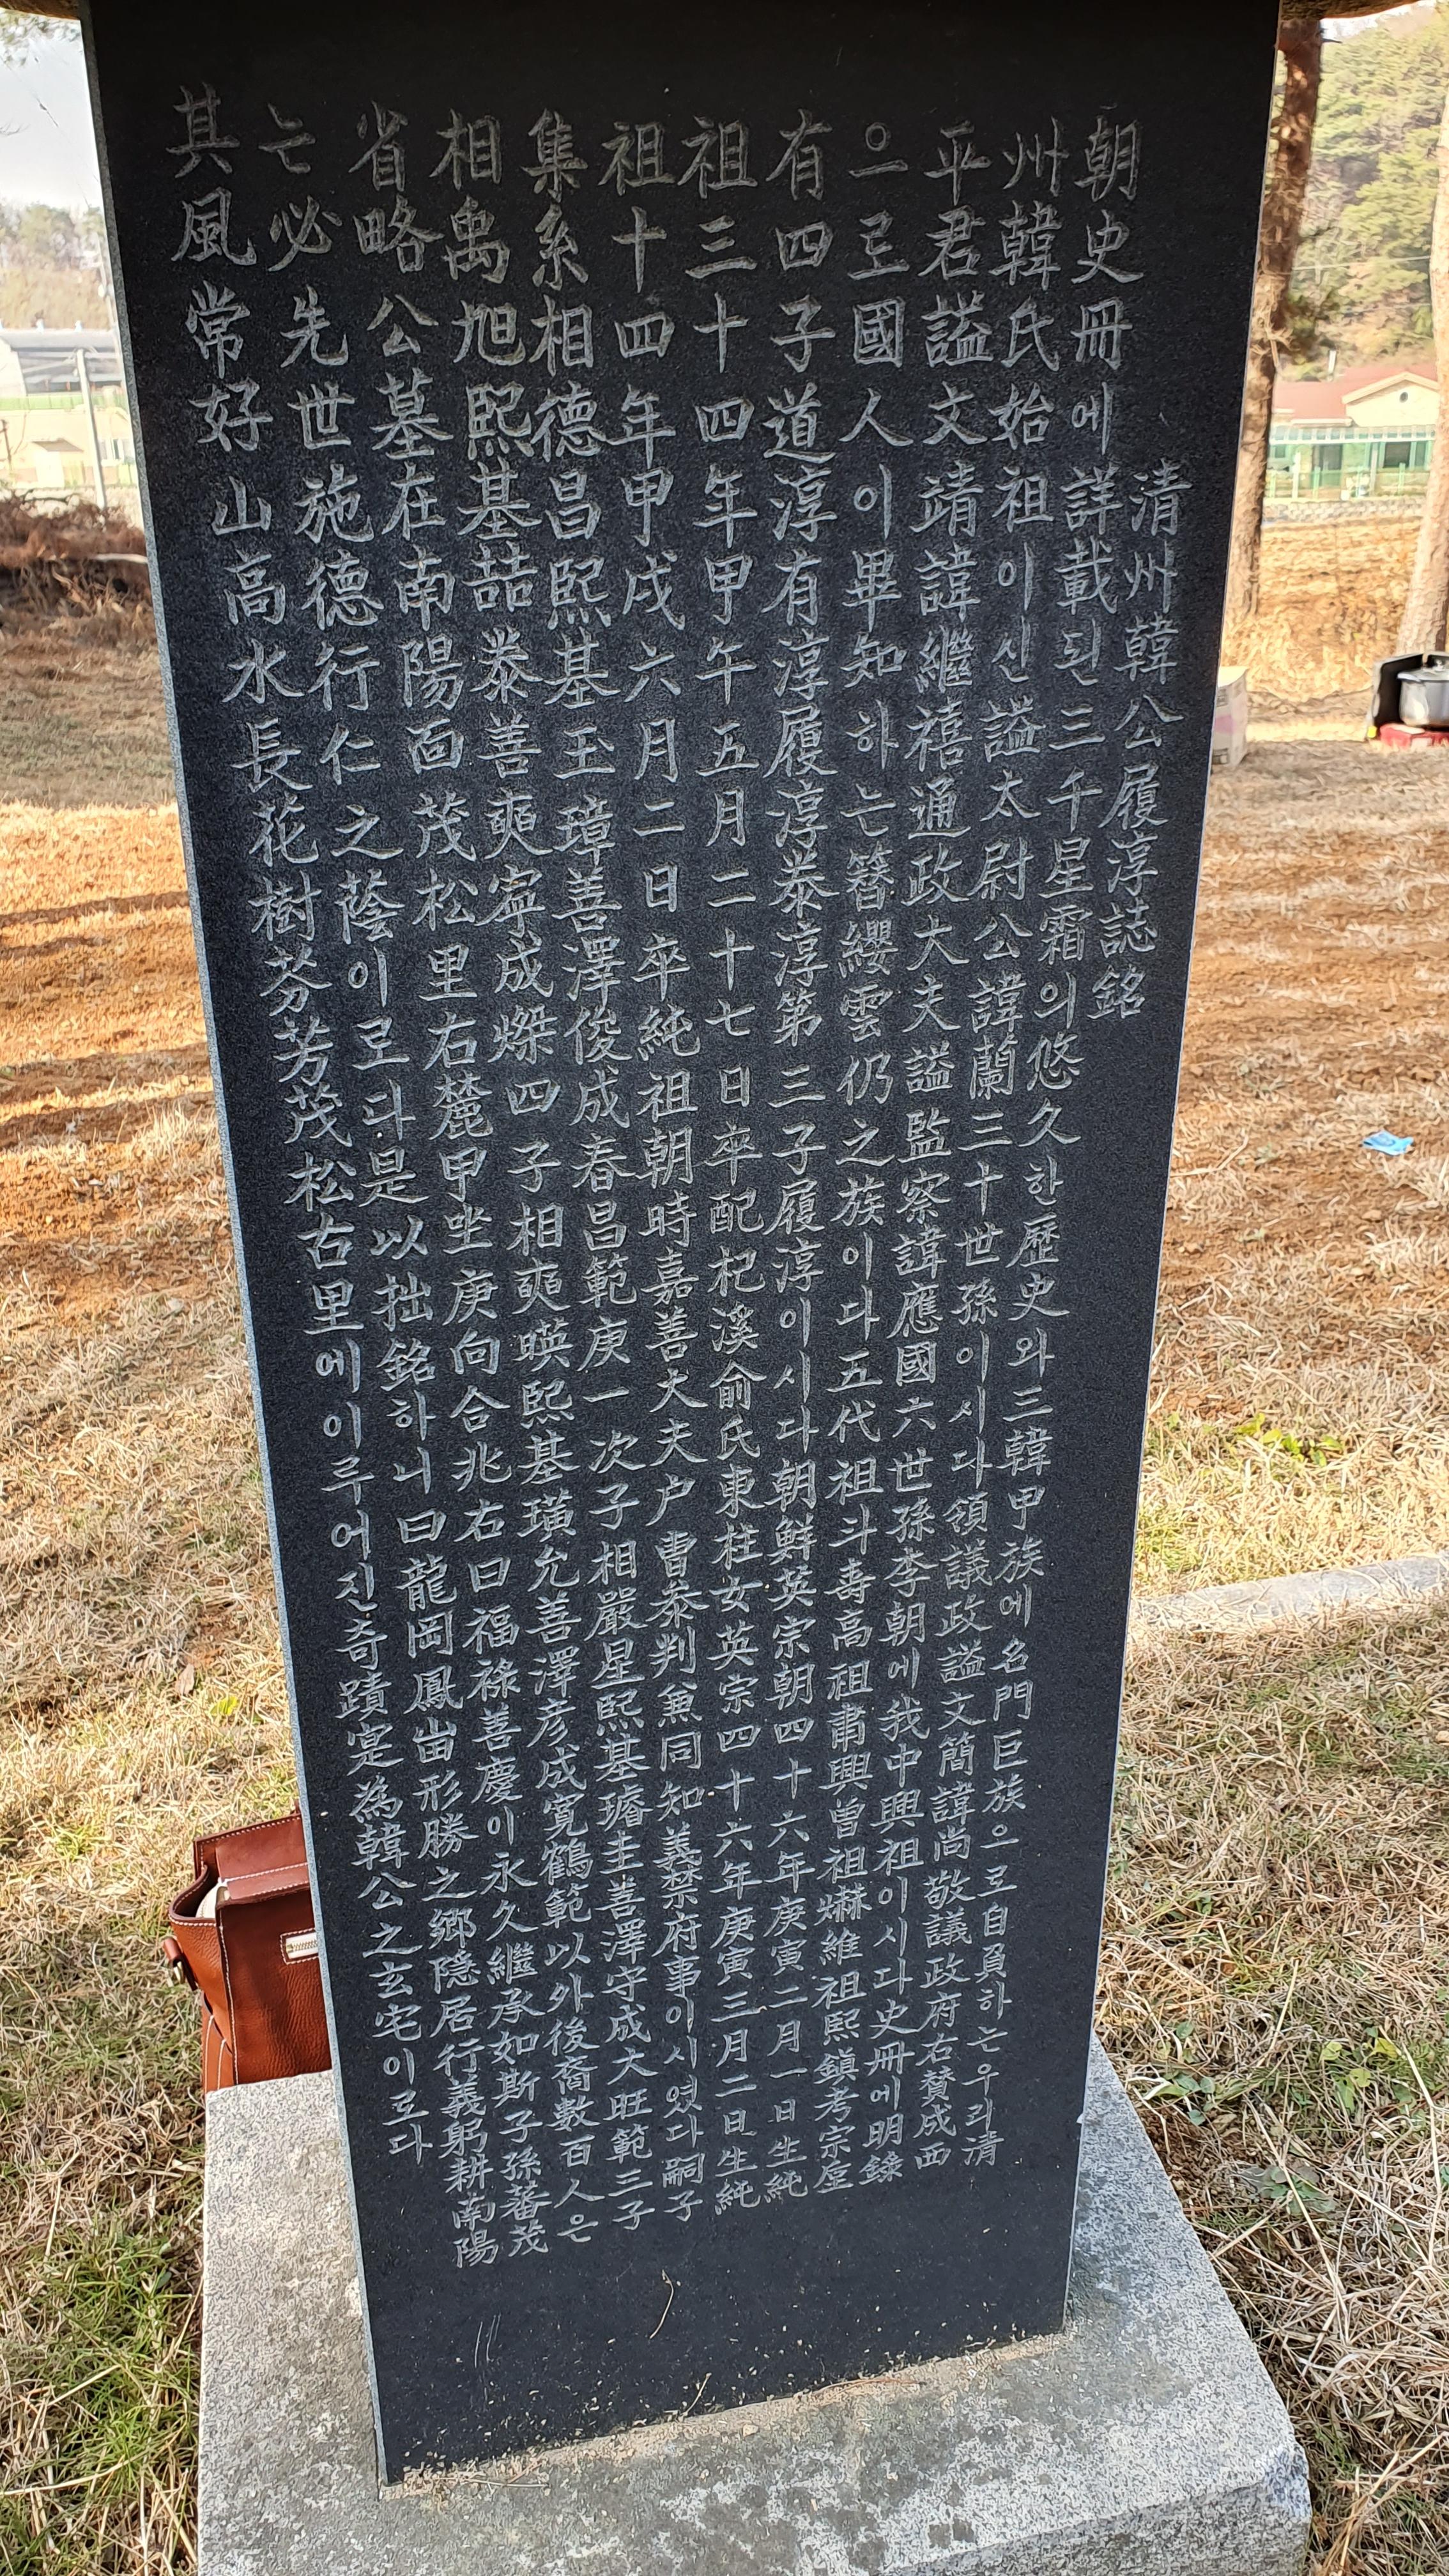 清州韓公履淳誌銘
朝史冊에詳載된三千星霜의悠久한歷史와三韓甲族에名門巨族으로自負하는우리淸
州韓氏始祖이신謚太尉公諱蘭三十世孫이시다領議政謚文簡諱尚敬議政府右贊成西
平君謚文靖諱繼禧通政大夫謚監察諱應國六世孫李朝에我中興祖이시다史冊에明錄
으로國人이畢知하는簪纓雲仍之族이다五代祖斗壽高祖肅興曾祖爀維祖熙鎭考宗垕
有四子道淳有淳履淳泰淳第三子履淳이시다朝鮮英宗朝四十六年庚寅二月一日生純
祖三十四年甲午五月二十七日卒配杞溪俞氏東柱女英宗四十六年庚寅三月二日生純
祖十四年甲戌六月二日卒純祖朝時嘉善大夫户曹參判兼同知義禁府事이시였다嗣子
集系相德昌熙基玉璋善澤俊成春昌範庚一次子相嚴星熙基璿圭善澤守成大旺範三子
相禹旭熙基喆泰善奭寧成燦四子相奭暎熙基璜允善澤彦成寬鶴範以外後裔數百人은
省略公墓在南陽面茂松里右麓甲坐庚向合兆右曰福祿善慶이永久繼承如斯子孫蕃茂
는必先世施德行仁之蔭이로다是以拙銘하니曰龍岡鳳峀形勝之鄉隱居行義躬耕南陽
其風常好山高水長花樹芬芳茂松古里에이루어진奇蹟寔為韓公之玄宅이로다